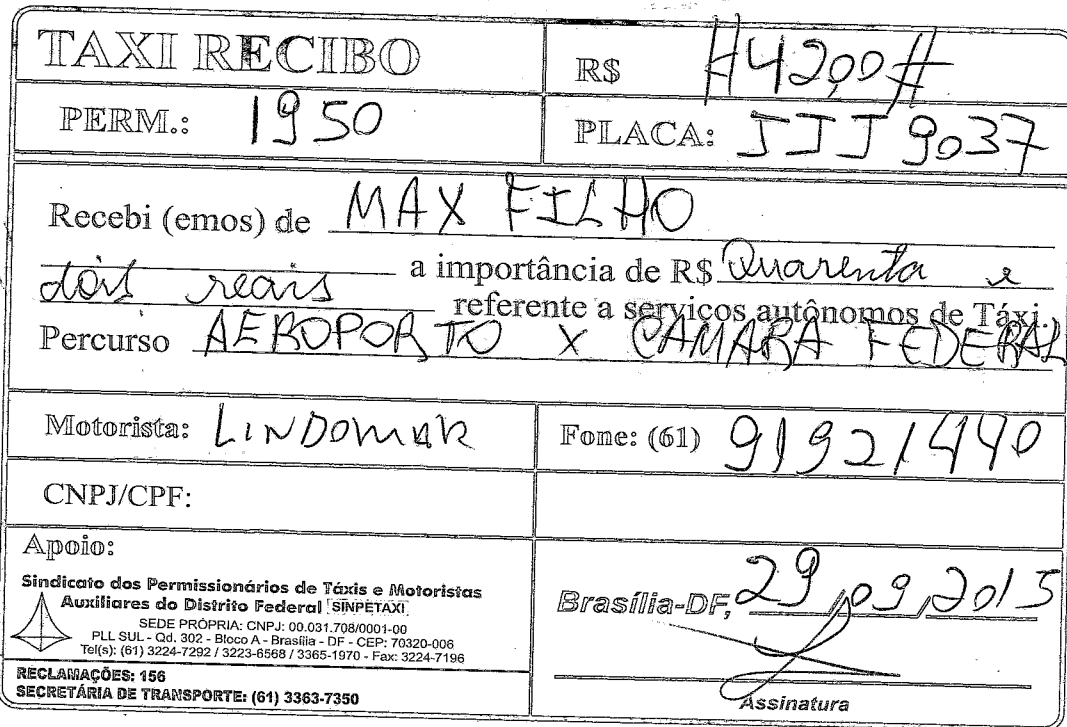 TAXI RECIBO
R$ #42,00#
PERM.: 1950
PLACA: JJJ 9037
Recebi (emos) de MAX FILHO
a importância de R$ Quarenta e
dois reais referente a serviços autônomos de Táxi.
Percurso AEROPORTO X CAMARA FEDERAL
Motorista: LINDOMAR
Fone: (61) 91921440
CNPJ/CPF:
Apoio:
Sindicato dos Permissionários de Táxis e Motoristas
Auxiliares do Distrito Federal SINPETAXI
SEDE PRÓPRIA: CNPJ: 00.031.708/0001-00
PLL SUL - Qd. 302 - Bloco A - Brasília - DF - CEP: 70320-006
Tel(s): (61) 3224-7292 / 3223-6568 / 3365-1970 - Fax: 3224-7196
RECLAMAÇÕES: 156
SECRETÁRIA DE TRANSPORTE: (61) 3363-7350
Brasília-DF, 29/09/2015
Assinatura